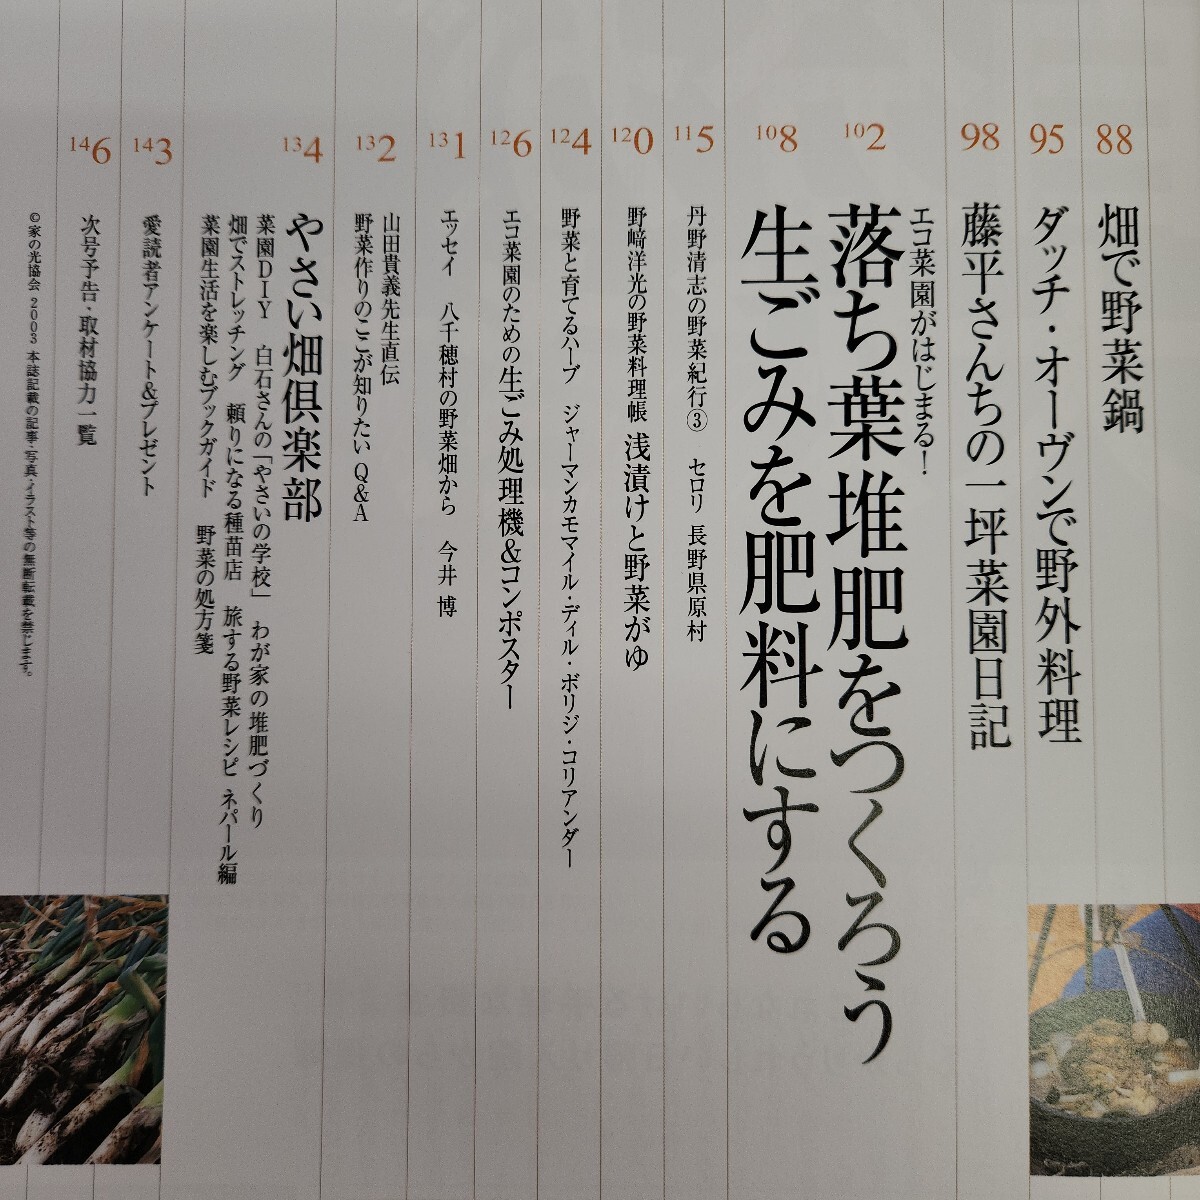 88
畑で野菜鍋
95
ダッチ・オーヴンで野外料理
98
藤平さんちの一坪菜園日記
エコ菜園がはじまる！
102
落ち葉堆肥をつくろう
108
生ごみを肥料にする
115
丹野清志の野菜紀行③ セロリ 長野県原村
120
野﨑洋光の野菜料理帳 浅漬けと野菜がゆ
124
野菜と育てるハーブ ジャーマンカモマイル・ディル・ボリジ・コリアンダー
126
エコ菜園のための生ごみ処理機&コンポスター
131
エッセイ 八千穂村の野菜畑から 今井 博
132
山田貴義先生直伝
野菜作りのここが知りたい Q&A
134
やさい畑倶楽部
菜園DIY 白石さんの「やさいの学校」 わが家の堆肥づくり
畑でストレッチング 頼りになる種苗店 旅する野菜レシピ ネパール編
菜園生活を楽しむブックガイド 野菜の処方箋
143
愛読者アンケート&プレゼント
146
次号予告・取材協力一覧
©家の光協会 2003 本誌記載の記事・写真・イラスト等の無断転載を禁じます。